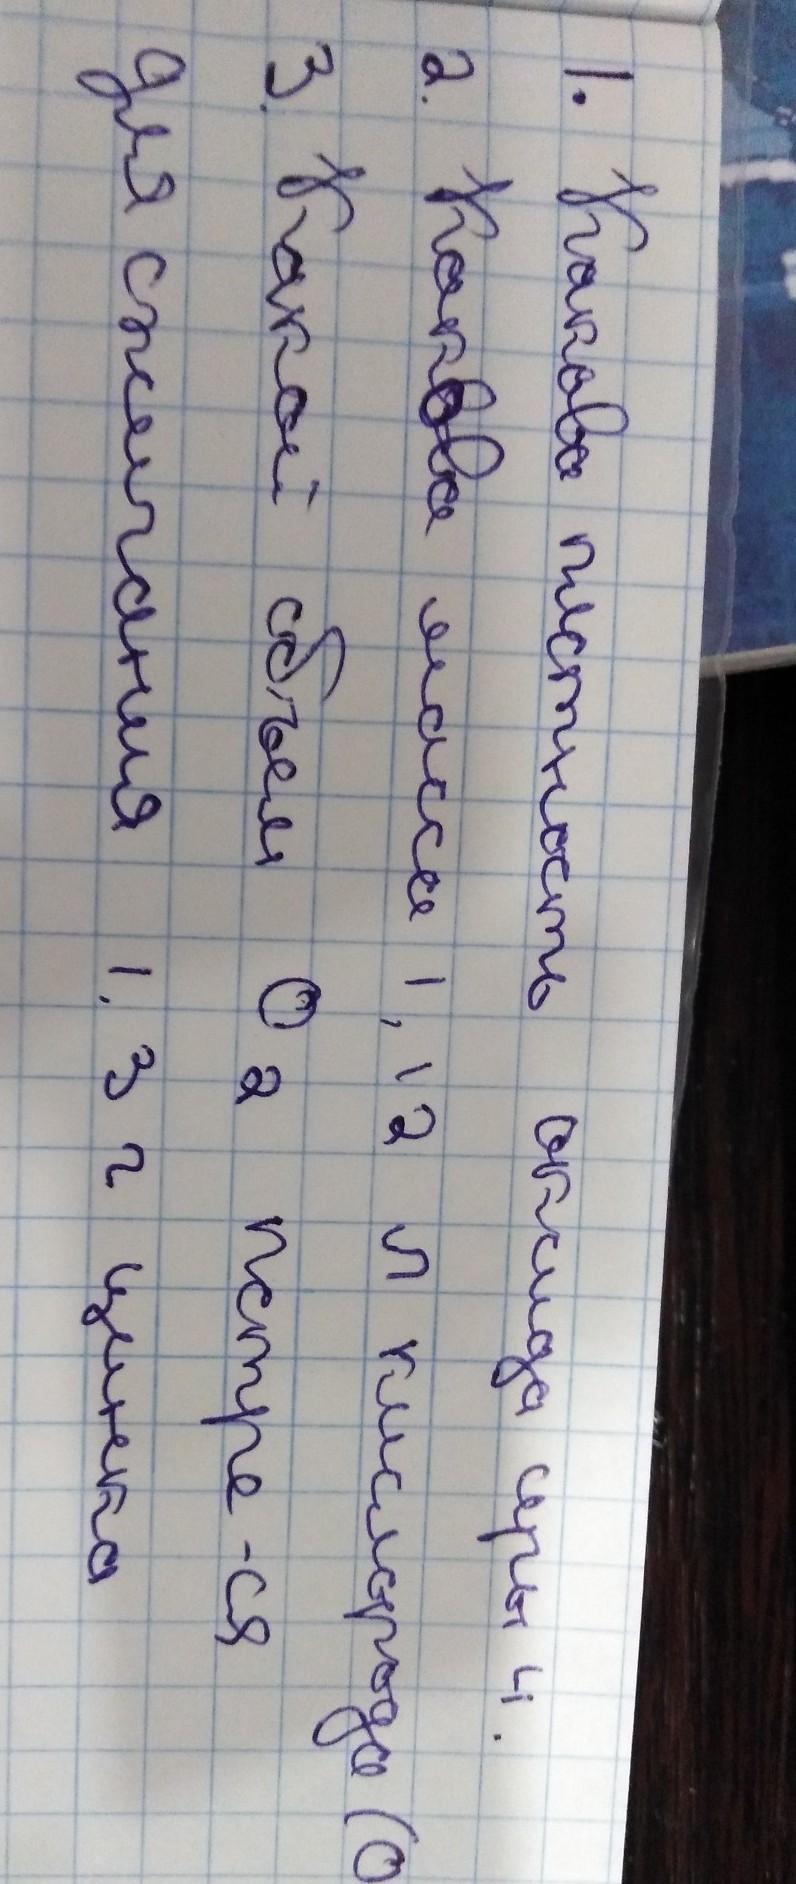 1. Какова плотность оксида серы 4.
2. Какова масса 1,12 л кислорода (О
3. Какой объем О2 потре-ся
для сжигания 1.3 г цинка